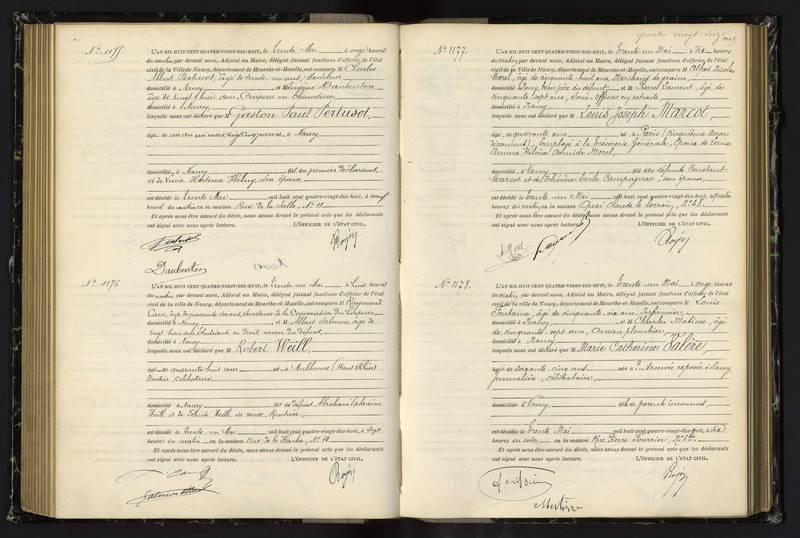 No 1175
L'AN MIL HUIT CENT QUATRE-VINGT-DIX-HUIT, le trente Mai à onze heures
du matin par devant nous, Adjoint au Maire, délégué faisant fonctions d'officier de l'état
civil de la ville de Nancy, département de Meurthe-et-Moselle, ont comparu M Charles
Albert Pertusot, âgé de trente un ans, Modeleur
domicilié à Nancy et M Daubenton
âgé de vingt huit ans, Coupeur en Chaussures
domicilié à Nancy
lesquels nous ont déclaré que M Gaston Paul Pertusot,
âgé de un an un mois né à Nancy
domicilié à Nancy fils du premier déclarant
et de Hortense son épouse
est décédé le trente Mai mil huit cent quatre-vingt-dix-huit, à neuf
heures du matin en sa maison Rue de la Salle, No 11
Et après nous être assuré du décès, nous avons dressé le présent acte que les déclarants
ont signé avec nous après lecture. L'OFFICIER DE L'ÉTAT CIVIL,
Daubenton
No 1176
L'AN MIL HUIT CENT QUATRE-VINGT-DIX-HUIT, le trente un Mai à huit heures
du matin, par devant nous, Adjoint au Maire, délégué faisant fonctions d'officier de l'état
civil de la ville de Nancy, département de Meurthe-et-Moselle, ont comparu M Raymond
Caen, âgé de quarante ans, Secrétaire de la Commission des Hospices
domicilié à Nancy et M Albert Salomon, âgé de
vingt trois ans Etudiant en Droit, neveu du défunt,
domicilié à Nancy
lesquels nous ont déclaré que M Robert Weill,
âgé de quarante huit ans né à Mulhouse (Haut Rhin)
Rentier, célibataire,
domicilié à Nancy fils de défunt Abraham Ephraïm
Weill et de Félicité Weill, sa veuve, Rentière
est décédé le trente un Mai mil huit cent quatre-vingt-dix-huit, à sept
heures du matin en sa maison Rue de la Hache, No 19
Et après nous être assuré du décès, nous avons dressé le présent acte que les déclarants
ont signé avec nous après lecture. L'OFFICIER DE L'ÉTAT CIVIL,
quatre vingt
No 1177.
L'AN MIL HUIT CENT QUATRE-VINGT-DIX-HUIT, le trente un Mai à dix heures
du matin, par devant nous, Adjoint au Maire, délégué faisant fonctions d'officier de l'état
civil de la Ville de Nancy, département de Meurthe-et-Moselle, ont comparu M Alfred Nicolas
Morel, âgé de cinquante huit ans, Marchand de grains,
domicilié à Nancy, beau père du défunt et M Pierre Laurent, âgé de
cinquante sept ans, Sous-officier en retraite
domicilié à Nancy
lesquels nous ont déclaré que M Louis Joseph Marcot,
âgé de quarante ans né à Paris (Cinquième arron
dissement) Employé à la Trésorerie Générale, Epoux de
Morel,
domicilié à Nancy fils des défunts Constant
Marcot et de Campagnac, son épouse
est décédé le trente un Mai mil huit cent quatre-vingt-dix-huit, à quatre
heures du matin en sa maison Quai Claude le Lorrain, No
Et après nous être assuré du décès, nous avons dressé le présent acte que les déclarants
ont signé avec nous après lecture. L'OFFICIER DE L'ÉTAT CIVIL.
No 1178.
L'AN MIL HUIT CENT QUATRE-VINGT-DIX-HUIT, le trente un Mai à onze heures
du matin, par devant nous, Adjoint au Maire, délégué faisant fonctions d'officier de l'état
civil de la ville de Nancy, département de Meurthe-et-Moselle, ont comparu M Louis
Fontaine, âgé de cinquante six ans, Infirmier,
domicilié à Nancy et M Charles âgé
de cinquante sept ans, Ouvrier plombier,
domicilié à Nancy
lesquels nous ont déclaré que M Marie Catherine Valère,
âgée de soixante cinq ans née à trouvée exposée à Nancy
journalière, célibataire,
domiciliée à Nancy fille de parents inconnus
est décédée le trente Mai mil huit cent quatre-vingt-dix-huit, à dix
heures du soir en sa maison Rue Pierre Fourrier, No
Et après nous être assuré du décès, nous avons dressé le présent acte que les déclarants
ont signé avec nous après lecture. L'OFFICIER DE L'ÉTAT CIVIL,